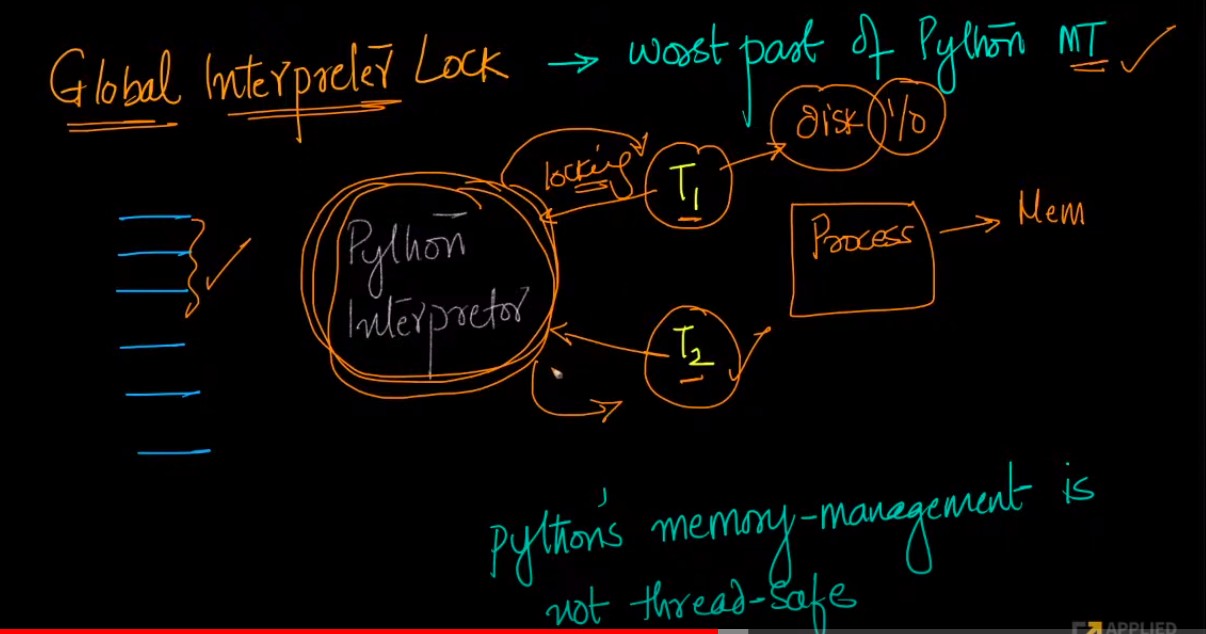 Global Interpreter Lock → worst part of Python MT ✓
disk I/O
locking
T1
Process → Mem
Python
Interpretor
T2
Python's memory-management is
not thread-safe
APPLIED